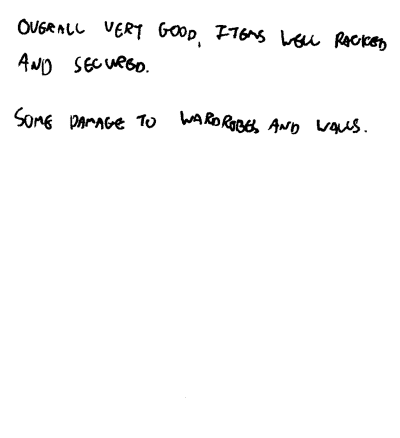 OVERALL VERY GOOD, ITEMS WELL PACKED
AND SECURED.
SOME DAMAGE TO WARDROBES AND WALLS.